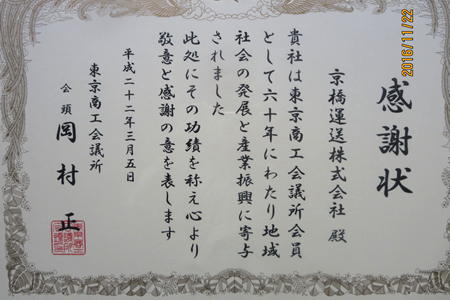 感謝状
京橋運送株式会社 殿
貴社は東京商工会議所会員
として六十年にわたり地域
社会の発展と産業振興に寄与
されました
此処にその功績を称え心より
敬意と感謝の意を表します
平成二十二年三月五日
東京商工会議所
会頭 岡村 正
2016/11/22